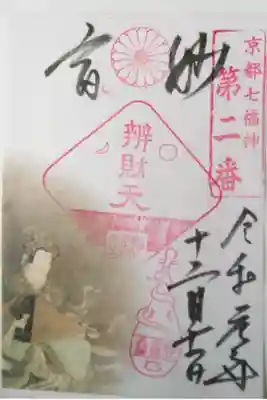 京都七福神
第二番
妙音
辨財天
令和元年
十二月十一日